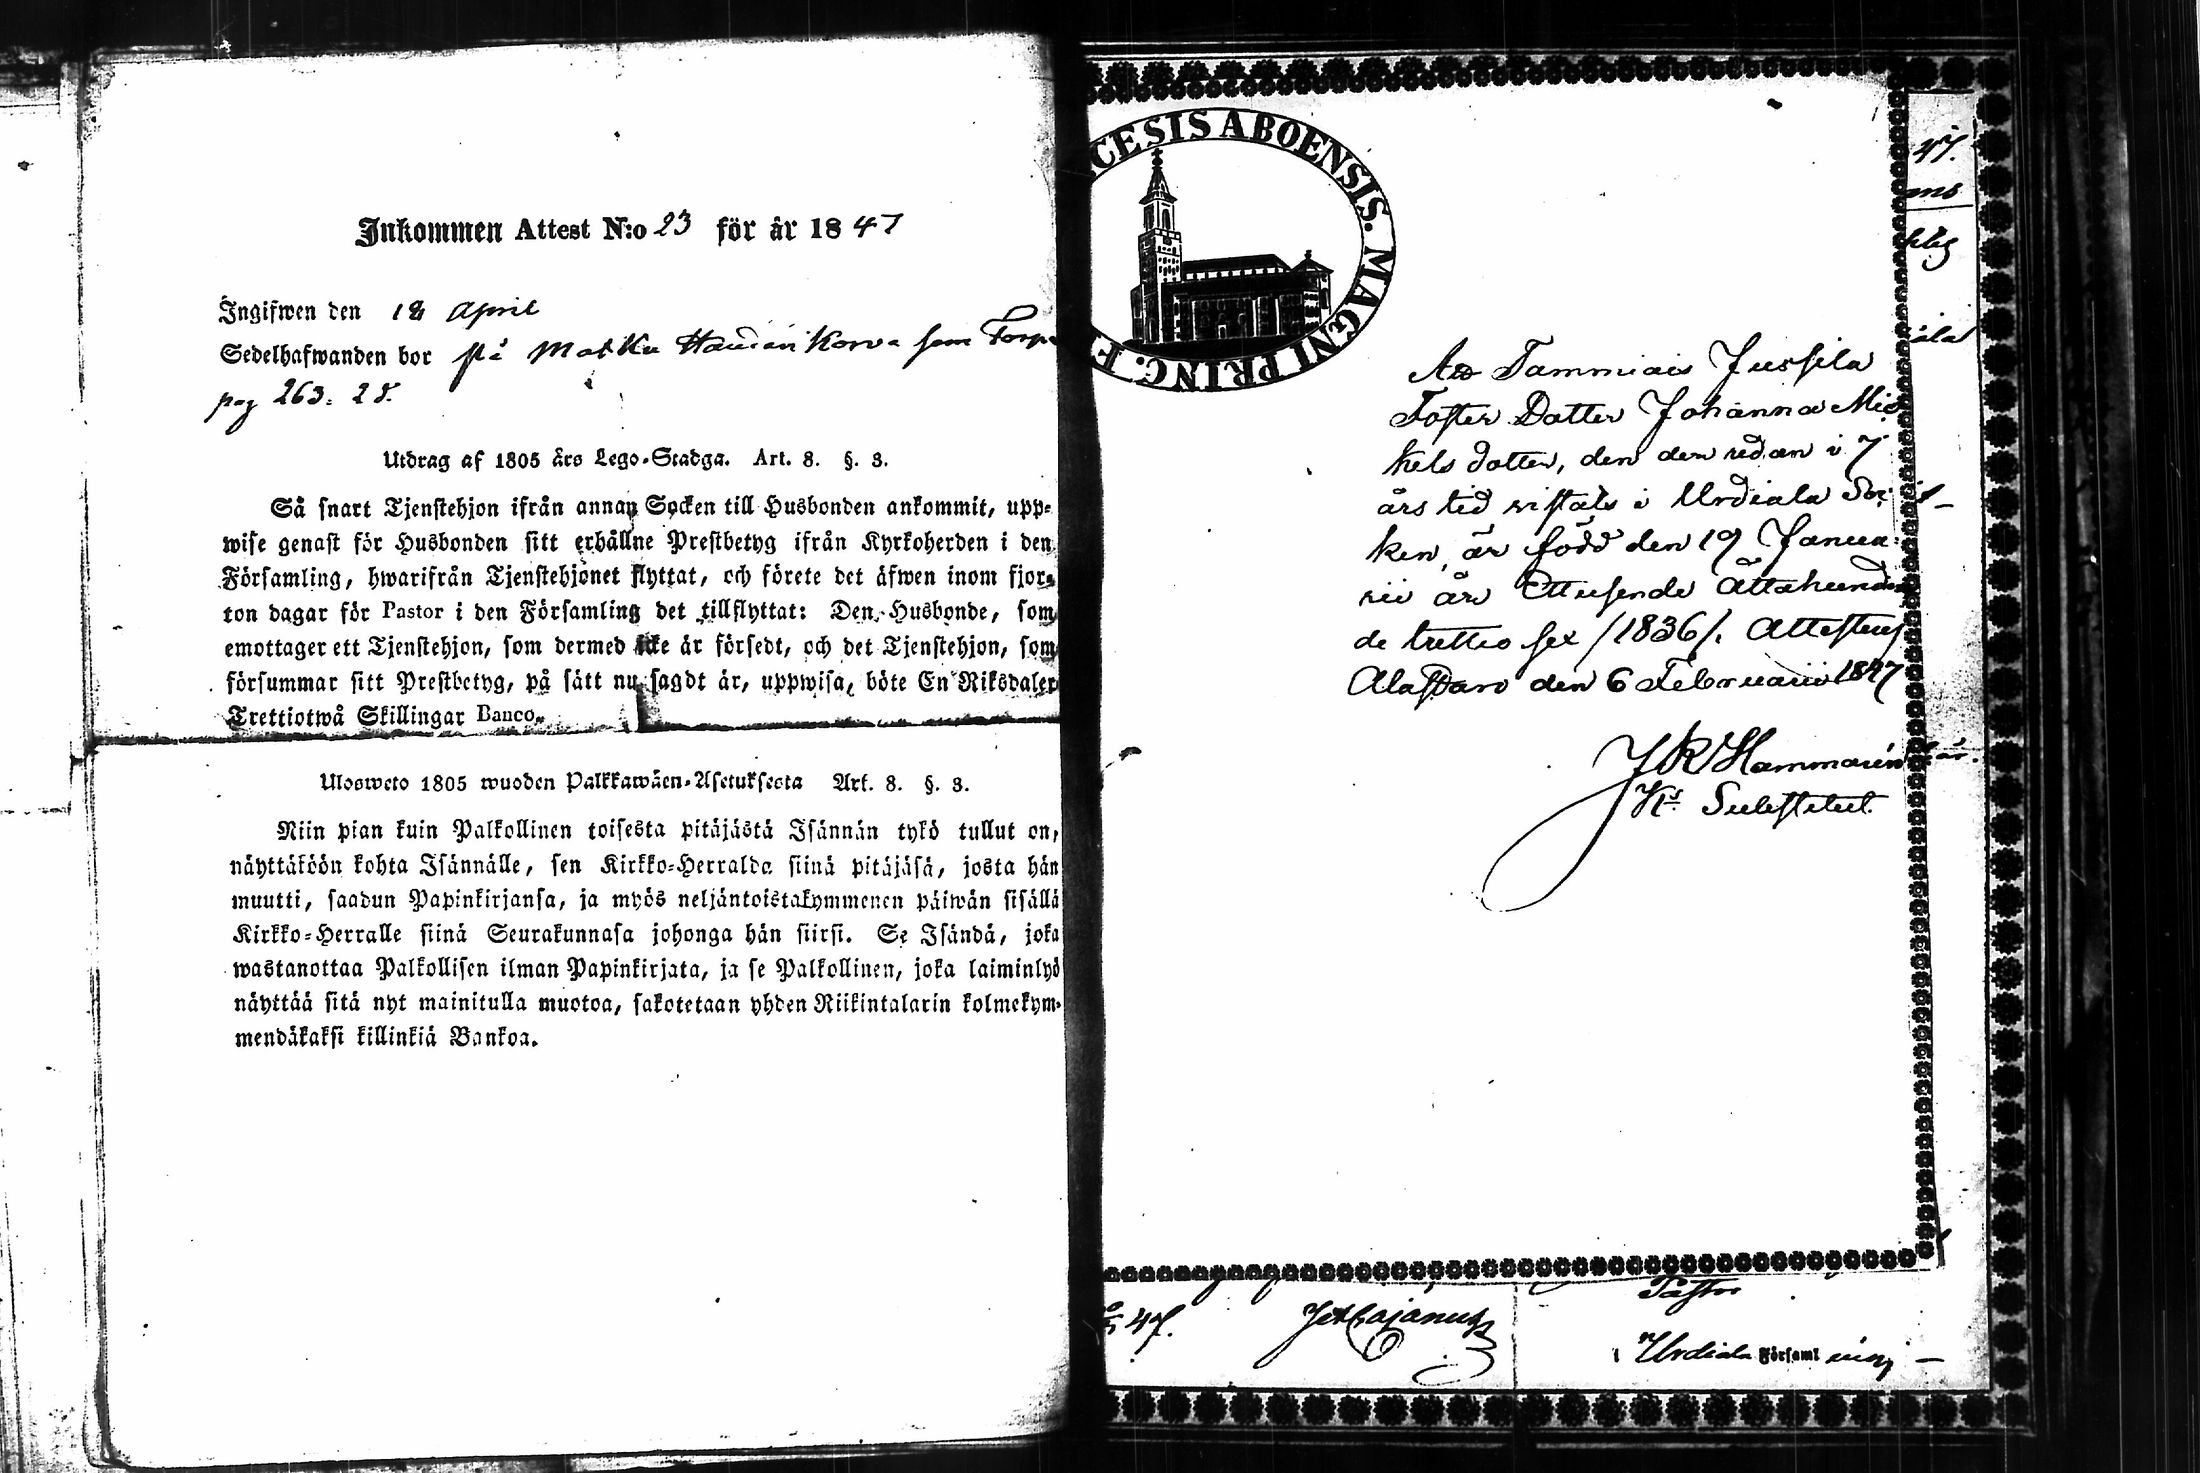 Inkommen Attest N:o 23 för år 1847
Ingifwen den 18 April
Sedelhafwanden bor på Matku Haudankorva som Torp
pag 263. 28.
Utdrag af 1805 års Lego-Stadga. Art. 8. §. 3.
Så snart Tjenstehjon ifrån annan Socken till Husbonden ankommit, upp-
wise genast för Husbonden sitt erhållne Prestbetyg ifrån Kyrkoherden i den
Församling, hwarifrån Tjenstehjonet flyttat, och förete det äfwen inom fjor-
ton dagar för Pastor i den Församling det tillflyttat: Den Husbonde, som
emottager ett Tjenstehjon, som dermed icke är försedt, och det Tjenstehjon, som
försummar sitt Prestbetyg, på sätt nu sagdt är, uppwisa, böte En Riksdaler
Trettiotwå Skillingar Banco.
Ulosweto 1805 wuoden Palkkawäen-Asetuksesta Art. 8. §. 3.
Niin pian kuin Palkollinen toisesta pitäjästä Isännän tykö tullut on,
näyttäköön kohta Isännälle, sen Kirkko-Herralda siinä pitäjäsä, josta hän
muutti, saadun Papinkirjansa, ja myös neljäntoistakymmenen päiwän sisällä
Kirkko-Herralle siinä Seurakunnasa johonga hän siirsi. Se Isändä, joka
wastanottaa Palkollisen ilman Papinkirjata, ja se Palkollinen, joka laiminlyö
näyttää sitä nyt mainitulla muotoa, sakotetaan yhden Riikintalarin kolmekym-
mendäkaksi killinkiä Bankoa.
CESIS ABOENSIS. MAGNI PRINC. F
47.
Tammiais Jussila
Foster Datter Johanna Mic
kels dotter, den der redan i 7
års tid vistats i Urdiala Soc
ken, är född den 19 Janua
rii år Ettusende Åttahundra
de trettio sex /1836/. Attesteras
Alastaro den 6 Februarii 1847
J R Hammarén
Ks. Substitut.
47. Cajanus
Pastor
i Urdiala Församl ing